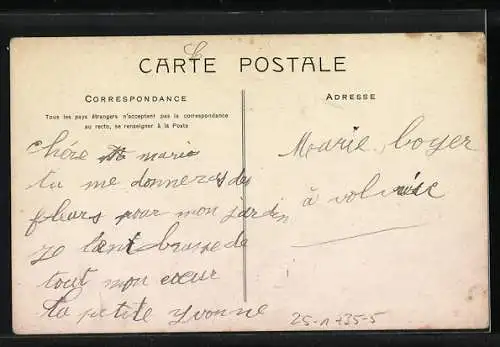 CARTE POSTALE
CORRESPONDANCE
Tous les pays étrangers n'acceptent pas la correspondance
au recto, se renseigner à la Poste
chére marie
tu me donneras des
fleurs pour mon jardin
je
tout mon cœur
ta petite yvonne
ADRESSE
Marie boyer
à volvic
25-11 +35-5